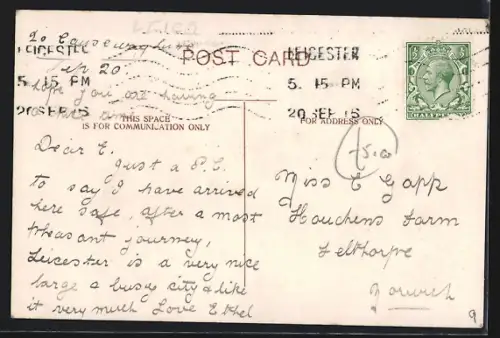 20 Causeway Lane
LEICESTER
Sep 20
5. 15 PM
hope you are having
20 SEP 15
POST CARD
LEICESTER
5. 15 PM
20 SEP 15
HALFPENNY
THIS SPACE
IS FOR COMMUNICATION ONLY
FOR ADDRESS ONLY
Dear E.
Just a P.C.
to say I have arrived
here safe, after a most
pleasant journey,
Leicester is a very nice
large & busy city & like
it very much Love Ethel
Miss E Gapp
Houchens Farm
Felthorpe
Norwich
9